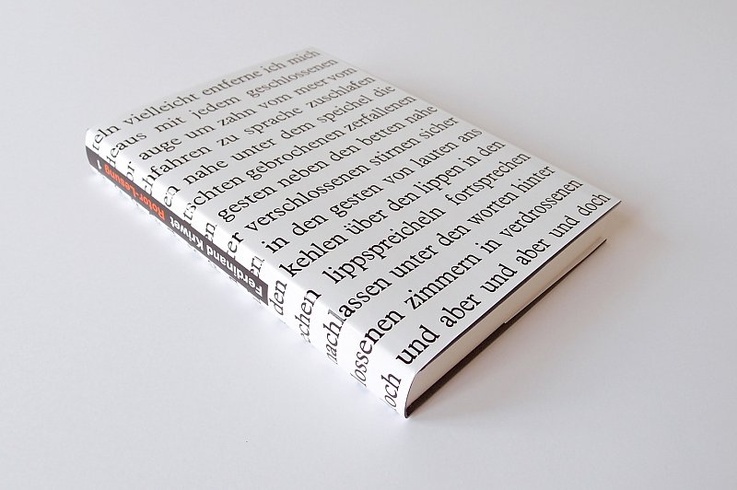 eln vielleicht entferne ich mich
eaus mit jedem geschlossenen
or auge um zahn vom meer vom
hfahren zu sprache zuschlafen
en nahe unter dem speichel die
tschten gebrochenen zerfallenen
n gesten neben den betten nahe
er verschlossenen stirnen sicher
en in den gesten von lauten ans
den kehlen über den lippen in den
chen lippspreicheln fortsprechen
nachlassen unter den worten hinter
lossenen zimmern in verdrossenen
och und aber und aber und doch
Ferdinand Kriwet Rotor-Lesung 1